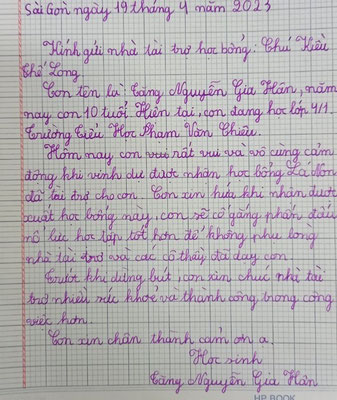 Sài Gòn ngày 19 tháng 4 năm 2023
Kính gửi nhà tài trợ học bổng: Chú Kiều
Chế Long.
Con tên là: Tăng Nguyễn Gia Hân, năm
nay con 10 tuổi. Hiện tại, con đang học lớp 4/1.
Trường Tiểu Học Phạm Văn Chiêu.
Hôm nay con rất vui và vô cùng cảm
động khi vinh dự được nhận học bổng Lá Non
đã tài trợ cho con. Con xin hứa khi nhận được
xuất học bổng này, con sẽ cố gắng phấn đấu
nỗ lực học tập tốt hơn để không phụ lòng
nhà tài trợ và các cô thầy đã dạy con.
Trước khi dừng bút, con xin chúc nhà tài
trợ nhiều sức khỏe và thành công trong công
việc hơn.
Con xin chân thành cảm ơn ạ.
Học sinh
Tăng Nguyễn Gia Hân
HP BOOK